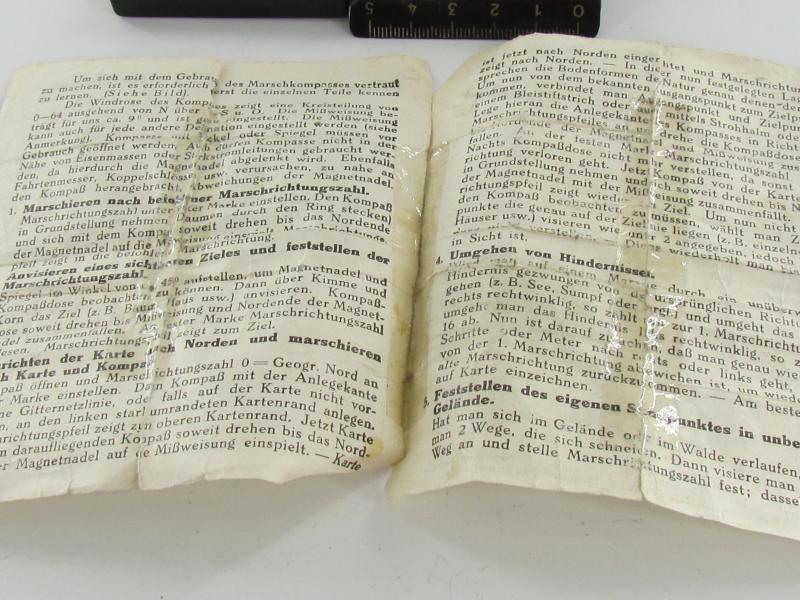 5 4 3 2 1 0
Um sich mit dem Gebrau des Marschkompasses vertraut
zu machen, ist es erforderlich erst die einzelnen Teile kennen
zu lernen. (Siehe Bild).
Die Windrose des Kompa es zeigt eine Kreisteilung von
0—64 ausgehend von N über S u. O. Die Mißweisung
trägt für uns ca. 9° und ist eingestellt. Die Mißweisung
kann auch für jede andere eingestellt werden (siehe
Anmerkung). Kompasse mit oder Spiegel müssen vor
Gebrauch geöffnet werden. Kompasse nicht in der
Nähe von Eisenmassen oder leitungen gebraucht wer-
den, da hierdurch die Magnetnadel abgelenkt wird. Ebenfalls
Fahrtenmesser, Koppelschlösser usw. verursachen, zu nahe an
den Kompaß herangebracht, Abweichungen der Magnetnadel.
1. Marschieren nach befohlener Marschrichtungszahl.
Marschrichtungszahl unter der Marke einstellen. Den Kompaß
in Grundstellung nehmen (Daumen durch den Ring stecken)
und sich mit dem Kompaß soweit drehen bis das Nordende
der Magnetnadel auf die Mißweisung
pfeil zeigt in die befohlene Marschrichtung.
Anvisieren eines sichtbaren Zieles und feststellen der
Marschrichtungszahl.
Spiegel im Winkel von 45° aufstellen, um Magnetnadel und
Kompaß beobachten zu können. Dann über Kimme und
Korn das Ziel (z. B. Haus usw.) anvisieren. Kompaß-
ose soweit drehen bis Mißweisung und Nordende der Magnet-
adel zusammenfallen. Unter Marke Marschrichtungszahl
esen. Marschrichtungspfeil zeigt zum Ziel.
richten der Karte nach Norden und marschieren
h Karte und Kompaß
paß öffnen und Marschrichtungszahl 0 = Geogr. Nord an
r Marke einstellen. Dann Kompaß mit der Anlegekante
ne Gitternetzlinie oder falls auf der Karte nicht vor-
n, an den linken stark umrandeten Kartenrand anlegen.
chrichtungspfeil zeigt zum oberen Kartenrand. Jetzt Karte
n daraufliegenden Kompaß soweit drehen bis das Nord-
er Magnetnadel auf die Mißweisung einspielt. — Karte
ist jetzt nach Norden eingerichtet und Marschrichtung
zeigt nach Norden. — In dieser nun festgelegten Lage
sprechen die Bodenformen der Natur genau denen
Um nun von dem bekannten Ausgangspunkt zum Zielpunkt
kommen, verbindet man Ausgangspunkt und Zielpun
einem Bleistiftstrich oder auch mittels Strohhalm oder
Leg hieran die Anlegekante des Kompasses in Richt
Marschrichtungspfeiles an und drehe die Kompaßrose
Nordende der Magnetnadel und Mißweisung zus
fallen. An der festen Marke Marschrichtungszahl
Nachts Kompaßdose nicht mehr verstellen, da sonst
richtung verloren geht. Jetzt Kompaß von der Karte
in Grundstellung nehmen und sich soweit drehen bis N
der Magnetnadel mit der Mißweisung zusammenfällt.
richtungspfeil zeigt wieder zum Ziel. Um nun nicht
den Kompaß beobachten zu müssen, wählt man Z
punkte die genau auf der Ziellinie liegen (z. B. einzeln
Häuser usw.) visieren wie unter 2 angegeben, jedoch
Dies wiederholt man
in Sicht ist.
4. Umgehen von Hindernissen.
Wird man auf einem Marsche durch ein unüberw
Hindernis gezwungen von der ursprünglichen Richt
gehen (z. B. See, Sumpf oder und umgeht das
rechts rechtwinklig, so zählt zur 1. Marschrichtung
umgeht man das Hindernis links rechtwinklig, so z
16 ab. Nun ist darauf zu achten, daß man genau wie
Schritte oder Meter nach rechts oder links geht,
von der 1. Marschrichtung abgewichen ist, um wieder
alte Marschrichtung zurückzukommen. — Am beste
auf Karte einzeichnen.
5. Feststellen des eigenen Standpunktes in unbe
Gelände.
Hat man sich im Gelände oder im Walde verlaufen,
man 2 Wege, die sich schneiden. Dann visiere man
Weg an und stelle Marschrichtungszahl fest; dasse